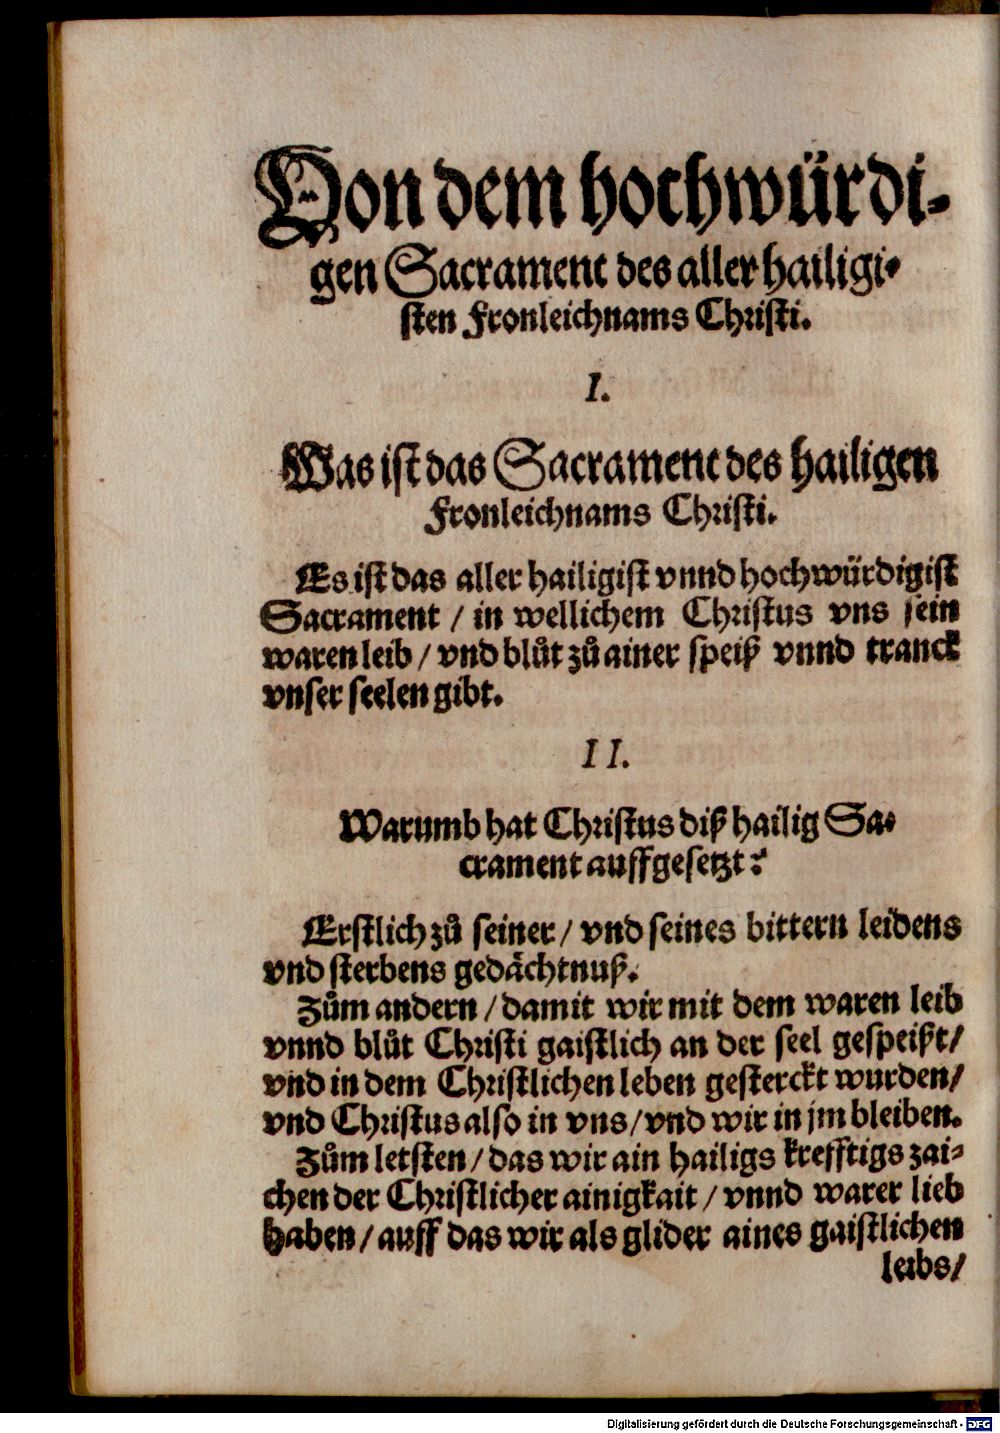 Von dem hochwürdi-
gen Sacrament des aller hailigi-
sten Fronleichnams Christi.
I.
Was ist das Sacrament des hailigen
Fronleichnams Christi.
Es ist das aller hailigist vnnd hochwürdigist
Sacrament / in wellichem Christus vns sein
waren leib / vnd blůt zů ainer speiß vnnd tranck
vnser seelen gibt.
II.
Warumb hat Christus diß hailig Sa-
crament auffgesetzt?
Erstlich zů seiner / vnd seines bittern leidens
vnd sterbens gedächtnuß.
Zům andern / damit wir mit dem waren leib
vnnd blůt Christi gaistlich an der seel gespeißt/
vnd in dem Christlichen leben gesterckt wurden/
vnd Christus also in vns/vnd wir in jm bleiben.
Zům letsten / das wir ain hailigs krefftigs zai-
chen der Christlicher ainigkait / vnnd warer lieb
haben / auff das wir als glider aines gaistlichen
leibs/
Digitalisierung gefördert durch die Deutsche Forschungsgemeinschaft - DFG